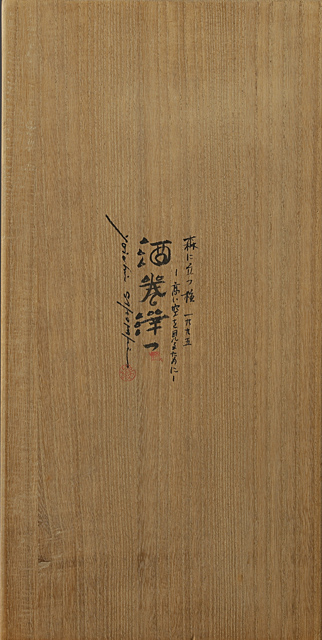 森に立つ板 一九九五
―高い空を見るために―
酒巻洋一
Yoichi Sakamaki